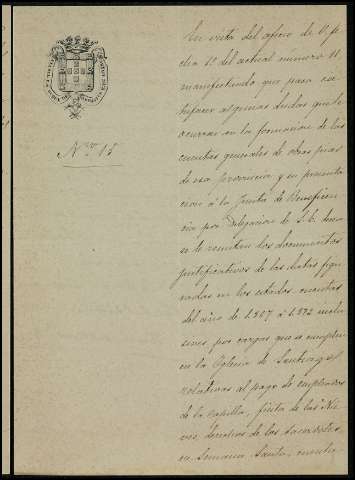 Nro. 15
En vista del oficio de V. fe
cha 1º del actual numero 11
manifestando que para sa
tisfacer algunas dudas que le
ocurran en la formacion de las
cuentas generales de obras pias
de esa provincia y su presenta
cion á la Junta de Beneficen
cia por delegacion de S. E.
se le remitan los documentos
justificativos de las datas figu
radas en los estados cuentas
del año de 1.807 á 1.892 inclu
sives, por cargas que se cumplen
en la Iglesia de Santiago,
relativas al pago de empleados
de la capilla, fiesta de las Nie
ves, derechos de los Sacerdotes
en Semana Santa,